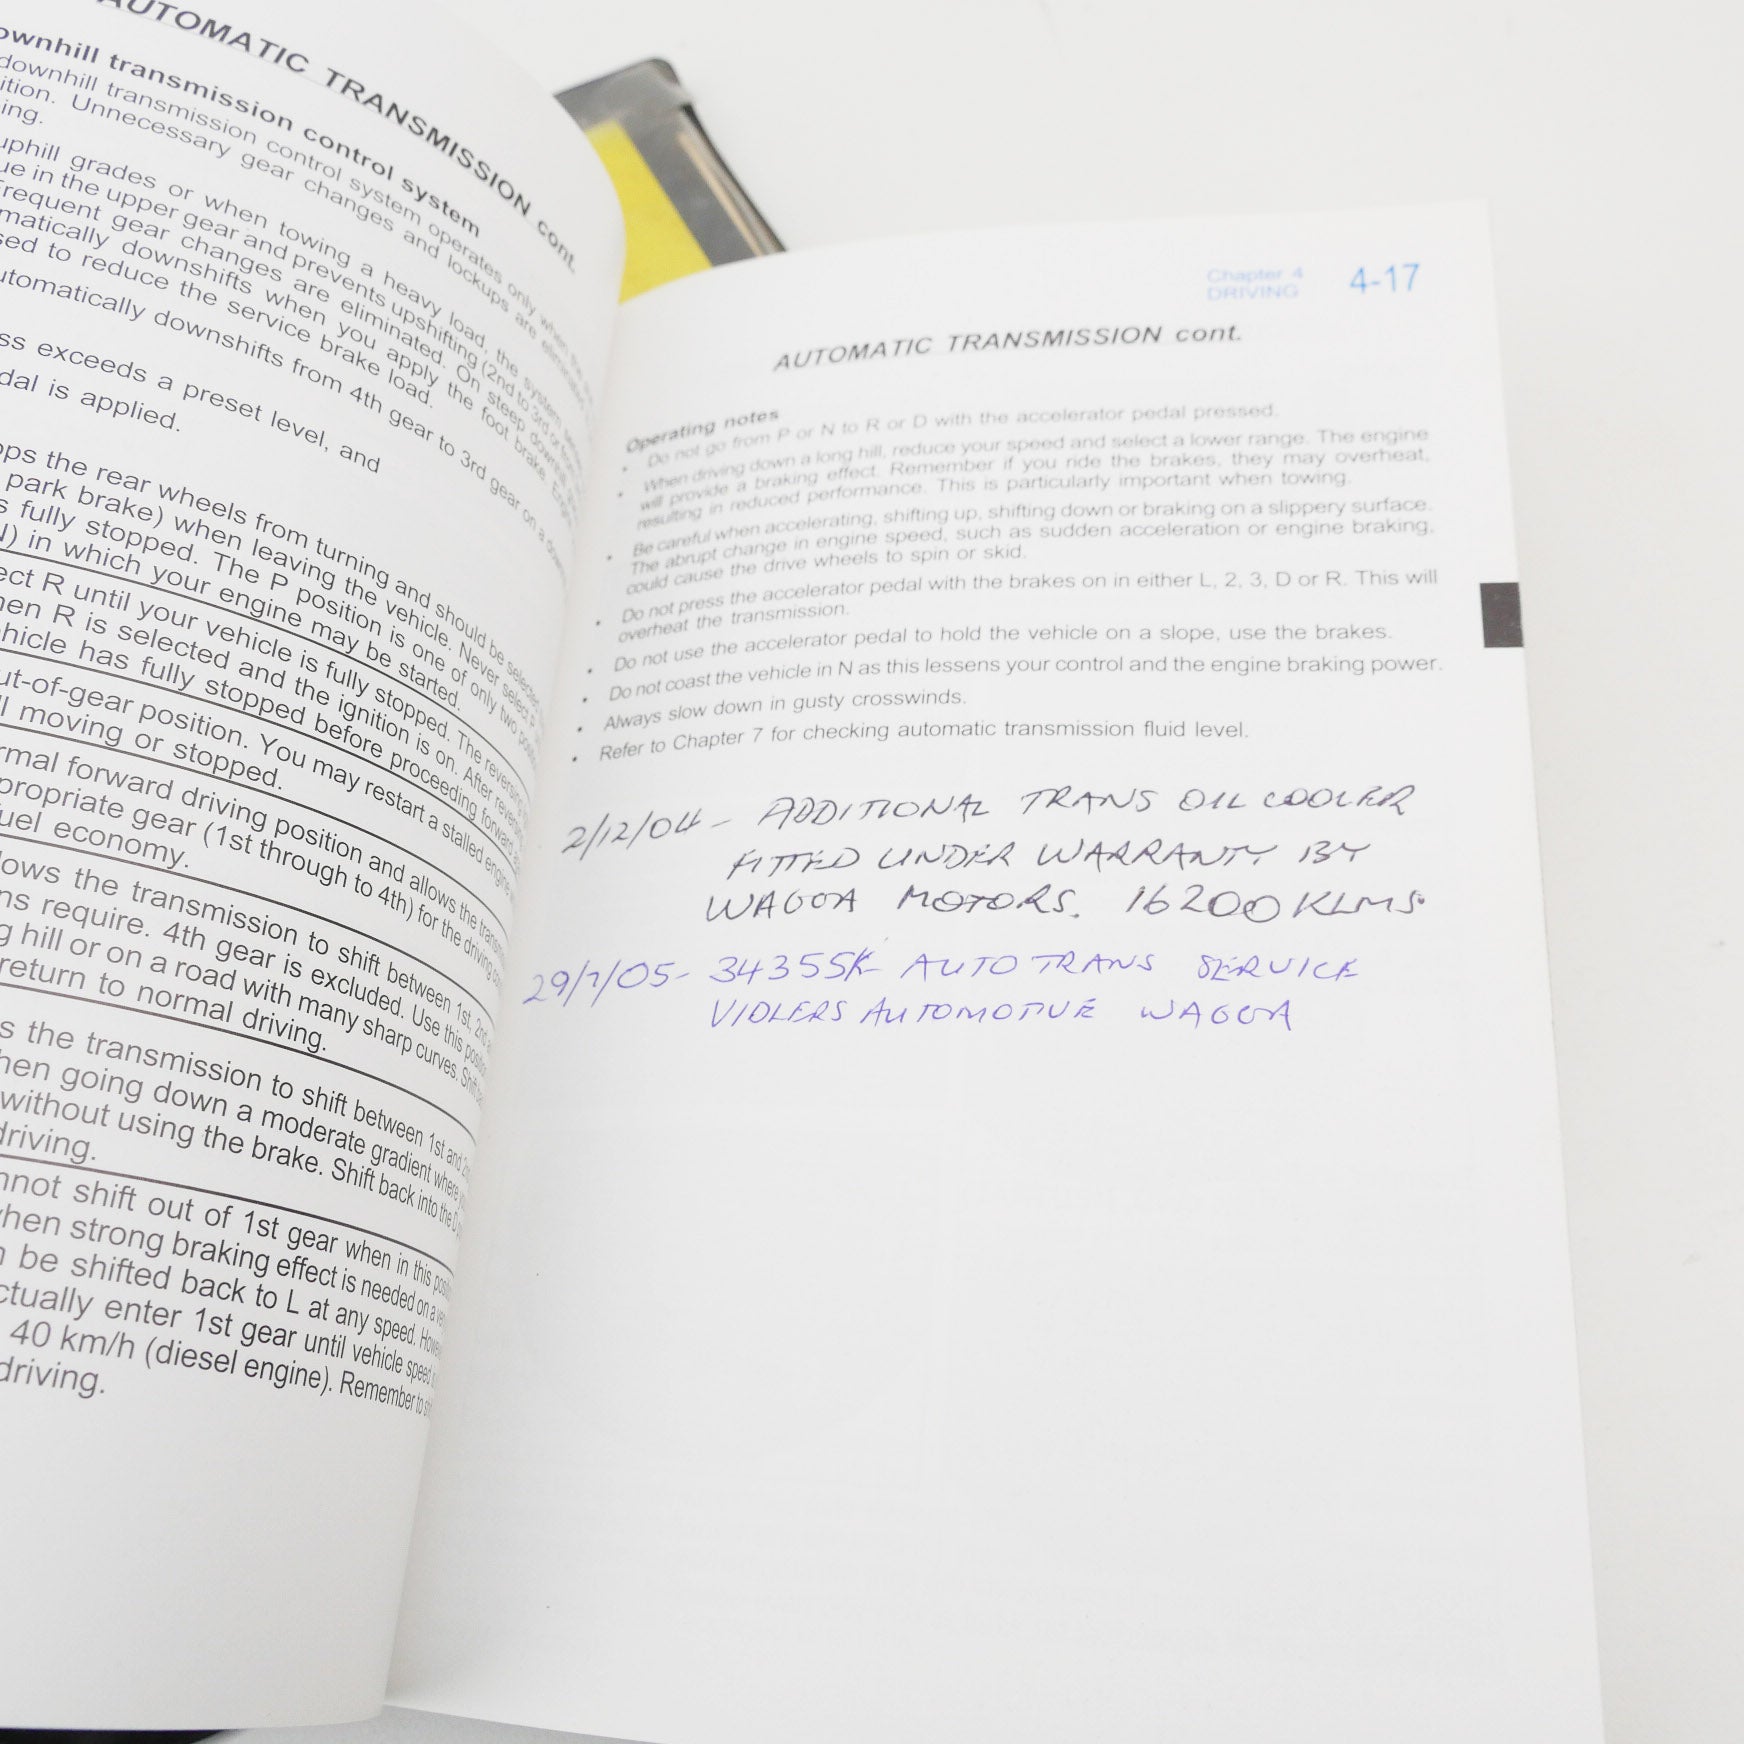 AUTOMATIC TRANSMISSION cont.
downhill transmission control system
downhill transmission control system operates only when the
Unnecessary gear changes and lockups are eliminated
uphill grades or when towing a heavy load, the system
in the upper gear and prevents upshifting (2nd to 3rd or from
Frequent gear changes are eliminated. On steep downhill
downshifts when you apply the foot brake.
to reduce the service brake load.
automatically downshifts from 4th gear to 3rd gear on a
exceeds a preset level, and
is applied.
the rear wheels from turning and should be selected
park brake) when leaving the vehicle. Never select P
fully stopped. The P position is one of only two
N) in which your engine may be started.
R until your vehicle is fully stopped. The reversing
R is selected and the ignition is on. After reversing
has fully stopped before proceeding forward
out-of-gear position. You may restart a stalled engine
moving or stopped.
forward driving position and allows the
gear (1st through to 4th) for the driving
fuel economy.
the transmission to shift between 1st, 2nd
require. 4th gear is excluded. Use this position
hill or on a road with many sharp curves. Shift
return to normal driving.
the transmission to shift between 1st and
when going down a moderate gradient where
without using the brake. Shift back into the D
driving.
shift out of 1st gear when in this
when strong braking effect is needed on a
be shifted back to L at any speed.
enter 1st gear until vehicle speed
40 km/h (diesel engine). Remember to
driving.
Chapter 4
DRIVING
4-17
AUTOMATIC TRANSMISSION cont.
Operating notes
• Do not go from P or N to R or D with the accelerator pedal pressed.
• When driving down a long hill, reduce your speed and select a lower range. The engine
will provide a braking effect. Remember if you ride the brakes, they may overheat,
resulting in reduced performance. This is particularly important when towing.
• Be careful when accelerating, shifting up, shifting down or braking on a slippery surface.
The abrupt change in engine speed, such as sudden acceleration or engine braking,
could cause the drive wheels to spin or skid.
• Do not press the accelerator pedal with the brakes on in either L, 2, 3, D or R. This will
overheat the transmission.
• Do not use the accelerator pedal to hold the vehicle on a slope, use the brakes.
• Do not coast the vehicle in N as this lessens your control and the engine braking power.
• Always slow down in gusty crosswinds.
• Refer to Chapter 7 for checking automatic transmission fluid level.
2/12/04 - ADDITIONAL TRANS OIL COOLER
FITTED UNDER WARRANTY BY
WAGGA MOTORS. 16200 KLMS.
29/7/05 - 34355K AUTO TRANS SERVICE
VIDLERS AUTOMOTIVE WAGGA